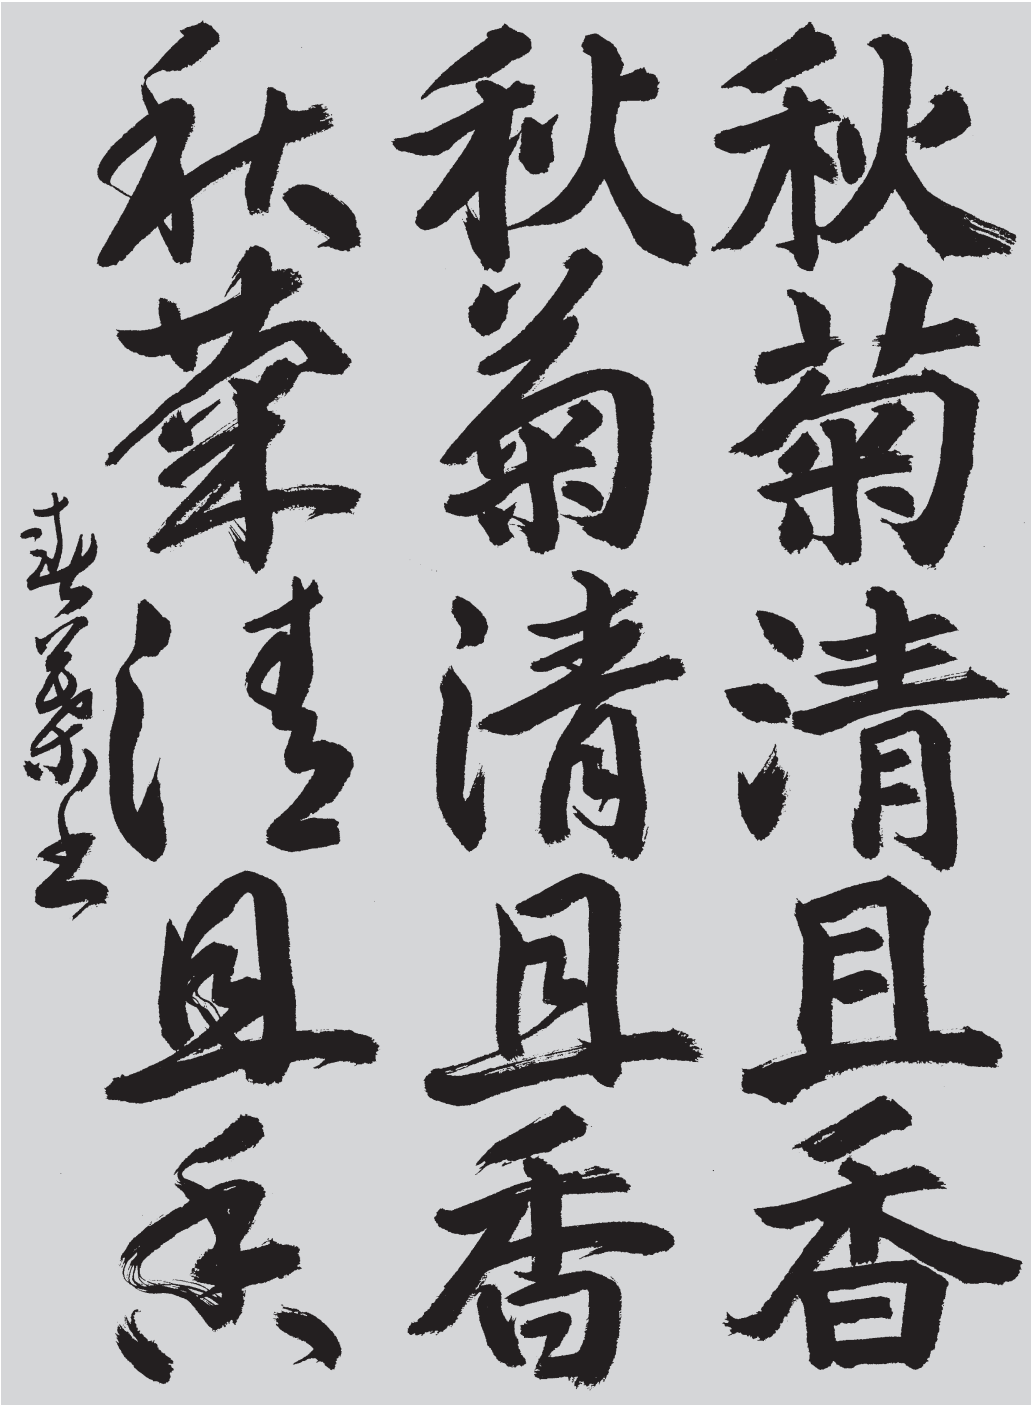 秋菊清且香
秋菊清且香
秋菊清且香